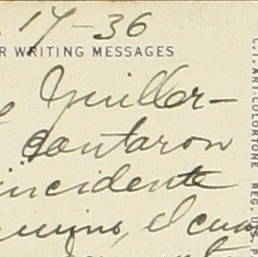 17-36
R WRITING MESSAGES
Guiller-
contaron
incidente
el
C.T. ART-COLORTONE REG. U.S. P